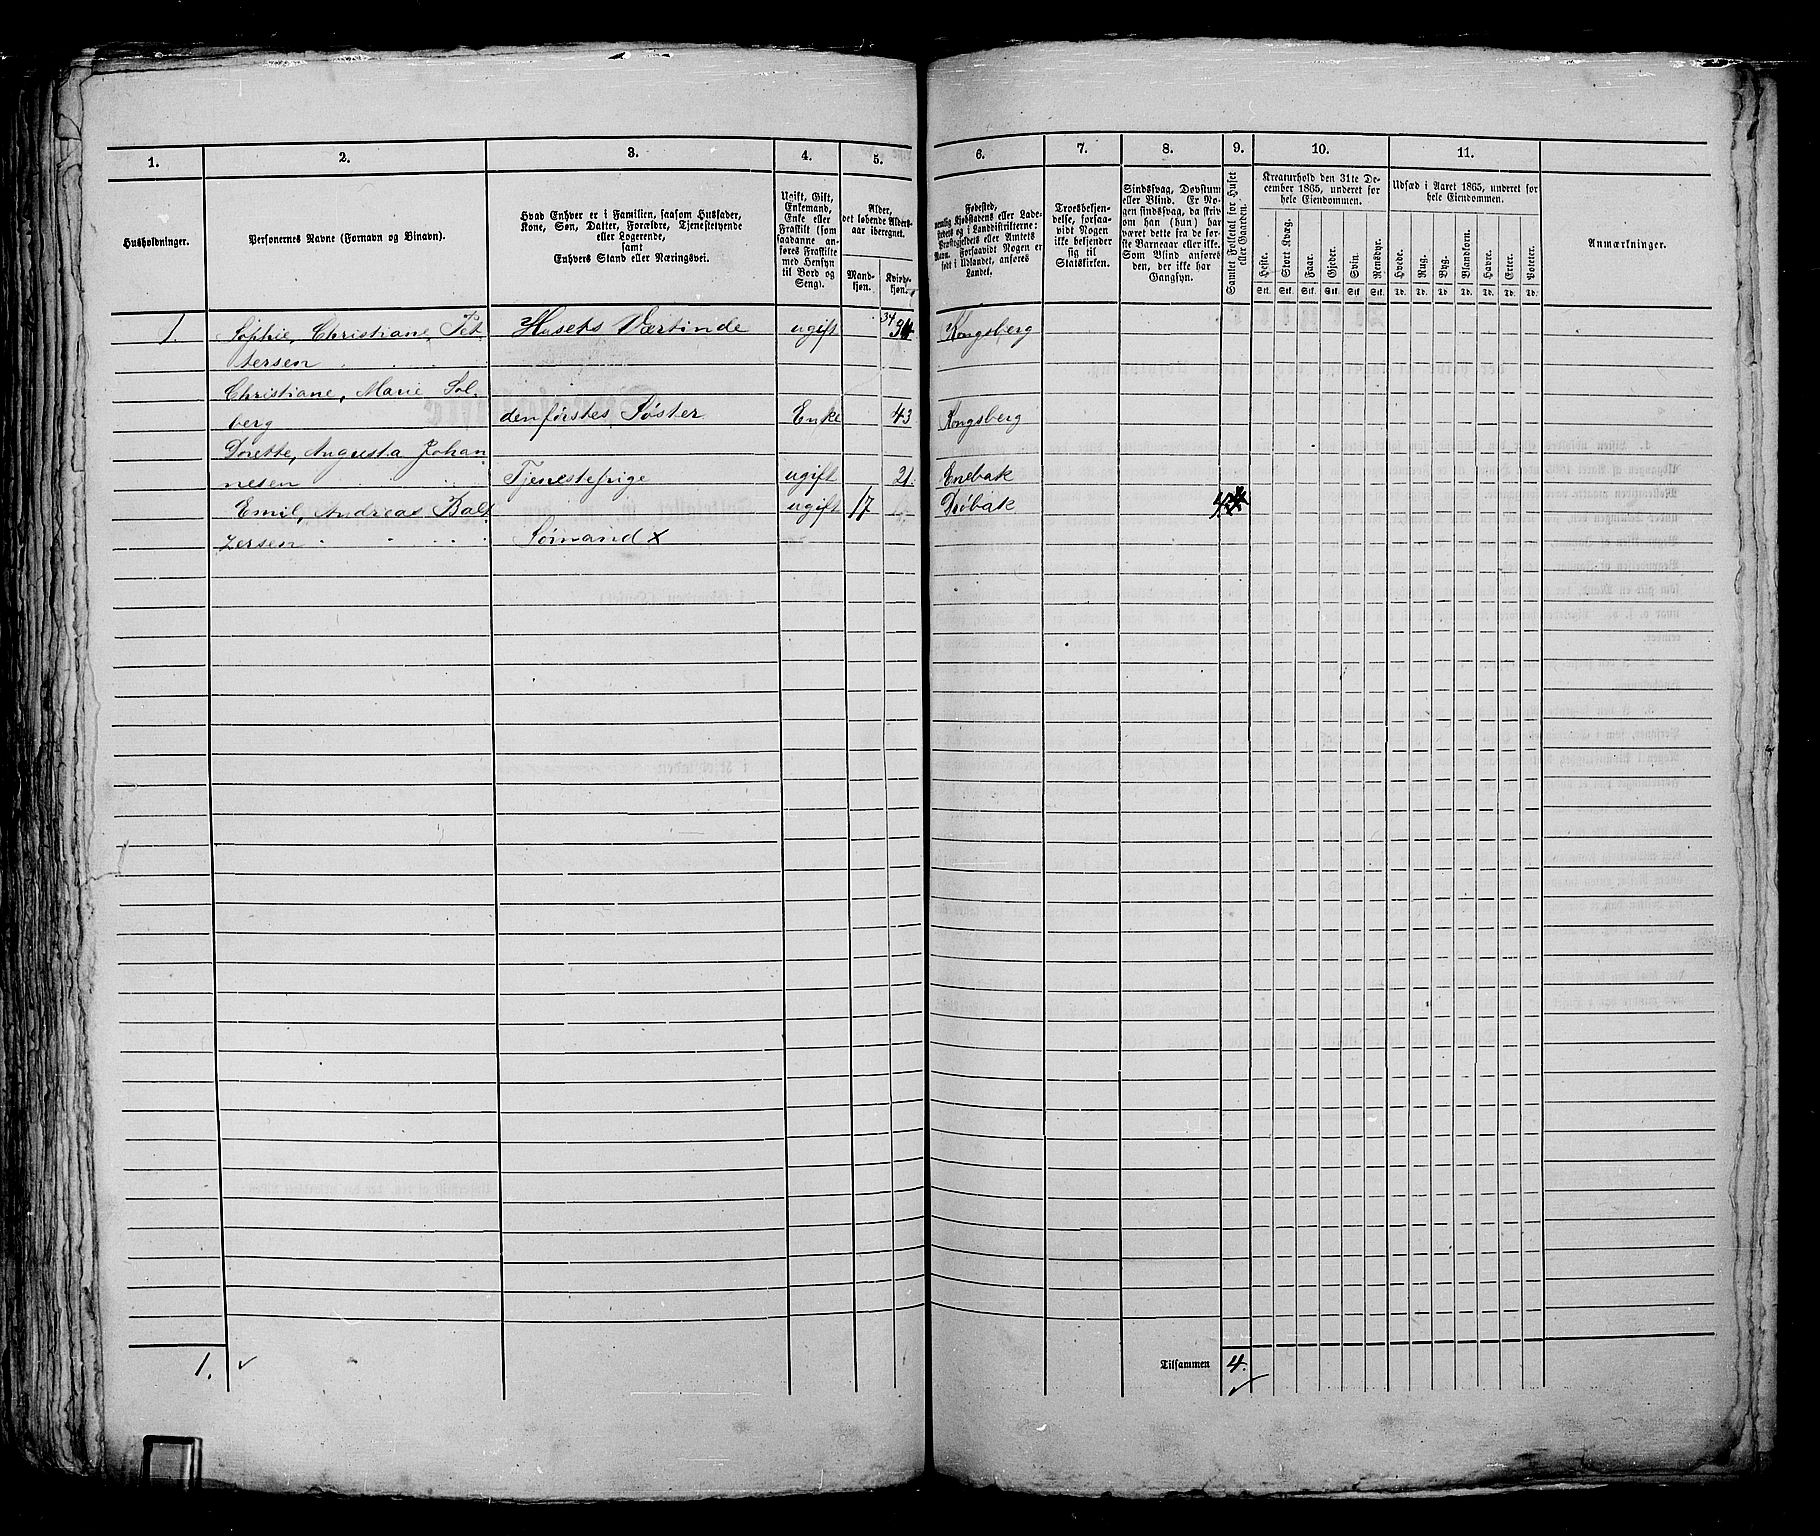 1.
2.
3.
4.
5.
6.
7.
8.
9.
10.
11.
Husholdninger.
Personernes Navne (Fornavn og Binavn).
Hvad Enhver er i Familien, saasom Husfader,
Kone, Søn, Datter, Forældre, Tjenestetyende
eller Logerende,
samt
Enhvers Stand eller Næringsvei.
Ugift, Gift,
Enkemand,
Enke eller
Fraskilt (som
saadanne an-
føres Fraskilte
med Hensyn
til Bord og
Seng).
Alder,
det løbende Alders-
aar iberegnet.
Mand-
kjøn.
Kvinde-
kjøn.
Fødested,
nemlig Kjøbstadens eller Lade-
stedets og i Landdistrikterne:
Præstegjeldets eller Amtets
Navn. Forsaavidt Nogen er
født i Udlandet, anføres
Landet.
Troesbekjen-
delse, forsaa-
vidt Nogen
ikke bekjender
sig til
Statskirken.
Sindssvag, Døvstum
eller Blind. Er No-
gen sindssvag, da skriv
om han (hun) har
været dette fra de før-
ste Barneaar eller ikke.
Som Blind anføres
den, der ikke har
Gangsyn.
Samlet Folketal for Huset
eller Gaarden.
Kreaturhold den 31te De-
cember 1865, underet for
hele Eiendommen.
Heste. Stort Kvæg. Faar. Gjeder. Svin. Rensdyr.
Stk. Stk. Stk. Stk. Stk. Stk.
Udsæd i Aaret 1865, underet for
hele Eiendommen.
Hvede. Rug. Byg. Blandkorn. Havre. Erter. Poteter.
Td. Td. Td. Td. Td. Td. Td.
Anmærkninger.
1. Sophie, Christiane, Pet- Husets Værtinde ugift 34 Kongsberg
tersen
Christiane, Marie Sol-
berg denførstes Søster Enke 43 Kongsberg
Dorette, Augusta Johan-
nesen Tjenestepige ugift 21. Enebak
Emil, Andreas Balt ugift 17 Drøbak 4
zersen Sømand x
1. ✓
Tilsammen 4. ✓